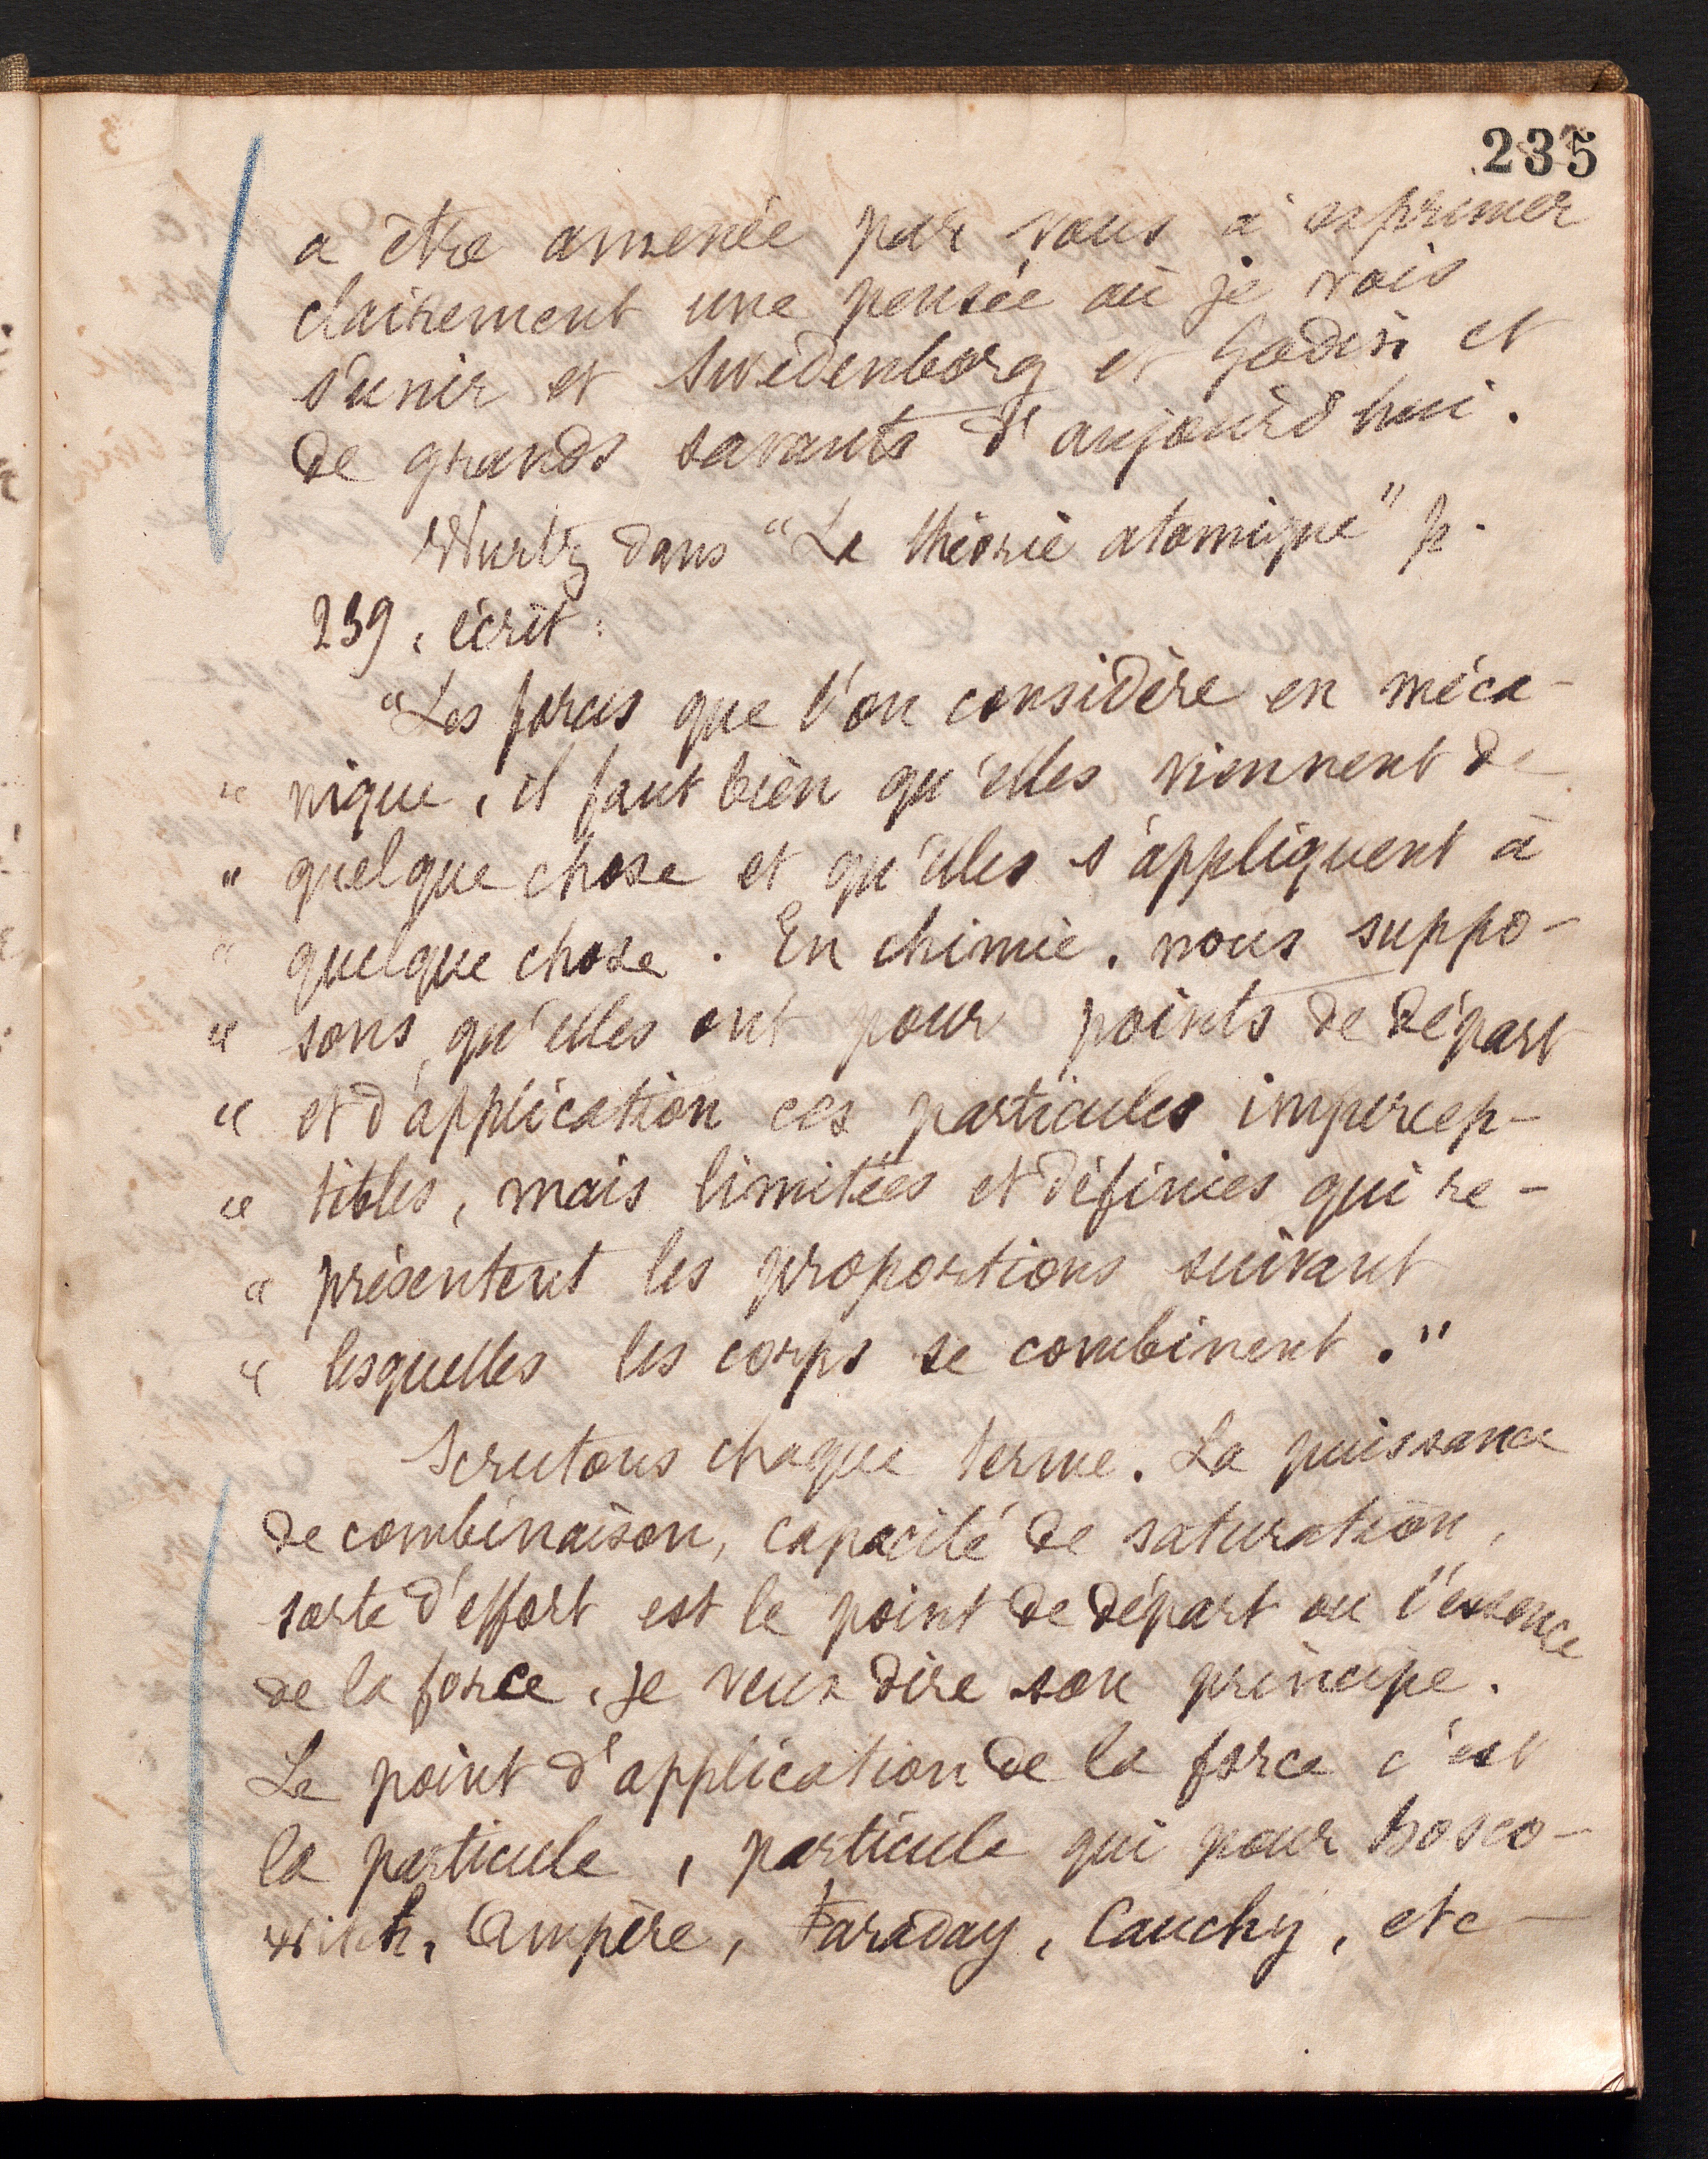 235
à être amenée par vous à exprimer
clairement une pensée où je vois
s'unir et Swedenborg et Godin et
de grands savants d'aujourd'hui.
Wurtz dans "La théorie atomique" p.
239, écrit :
"Les forces que l'on considère en méca-
" nique, il faut bien qu'elles viennent de
" quelque chose et qu'elles s'appliquent à
" quelque chose. En chimie, nous suppo-
" sons, qu'elles ont pour points de départ
" et d'application ces particules impercep-
" tibles, mais limitées et définies qui re-
" présentent les proportions suivant
" lesquelles les corps se combinent."
Scrutons chaque terme. La puissance
de combinaison, capacité de saturation,
sorte d'effort est le point de départ ou l'essence
de la force, je veux dire son principe.
Le point d'application de la force c'est
la particule, particule qui pour Bosco-
witch, Ampère, Faraday, Cauchy, etc -